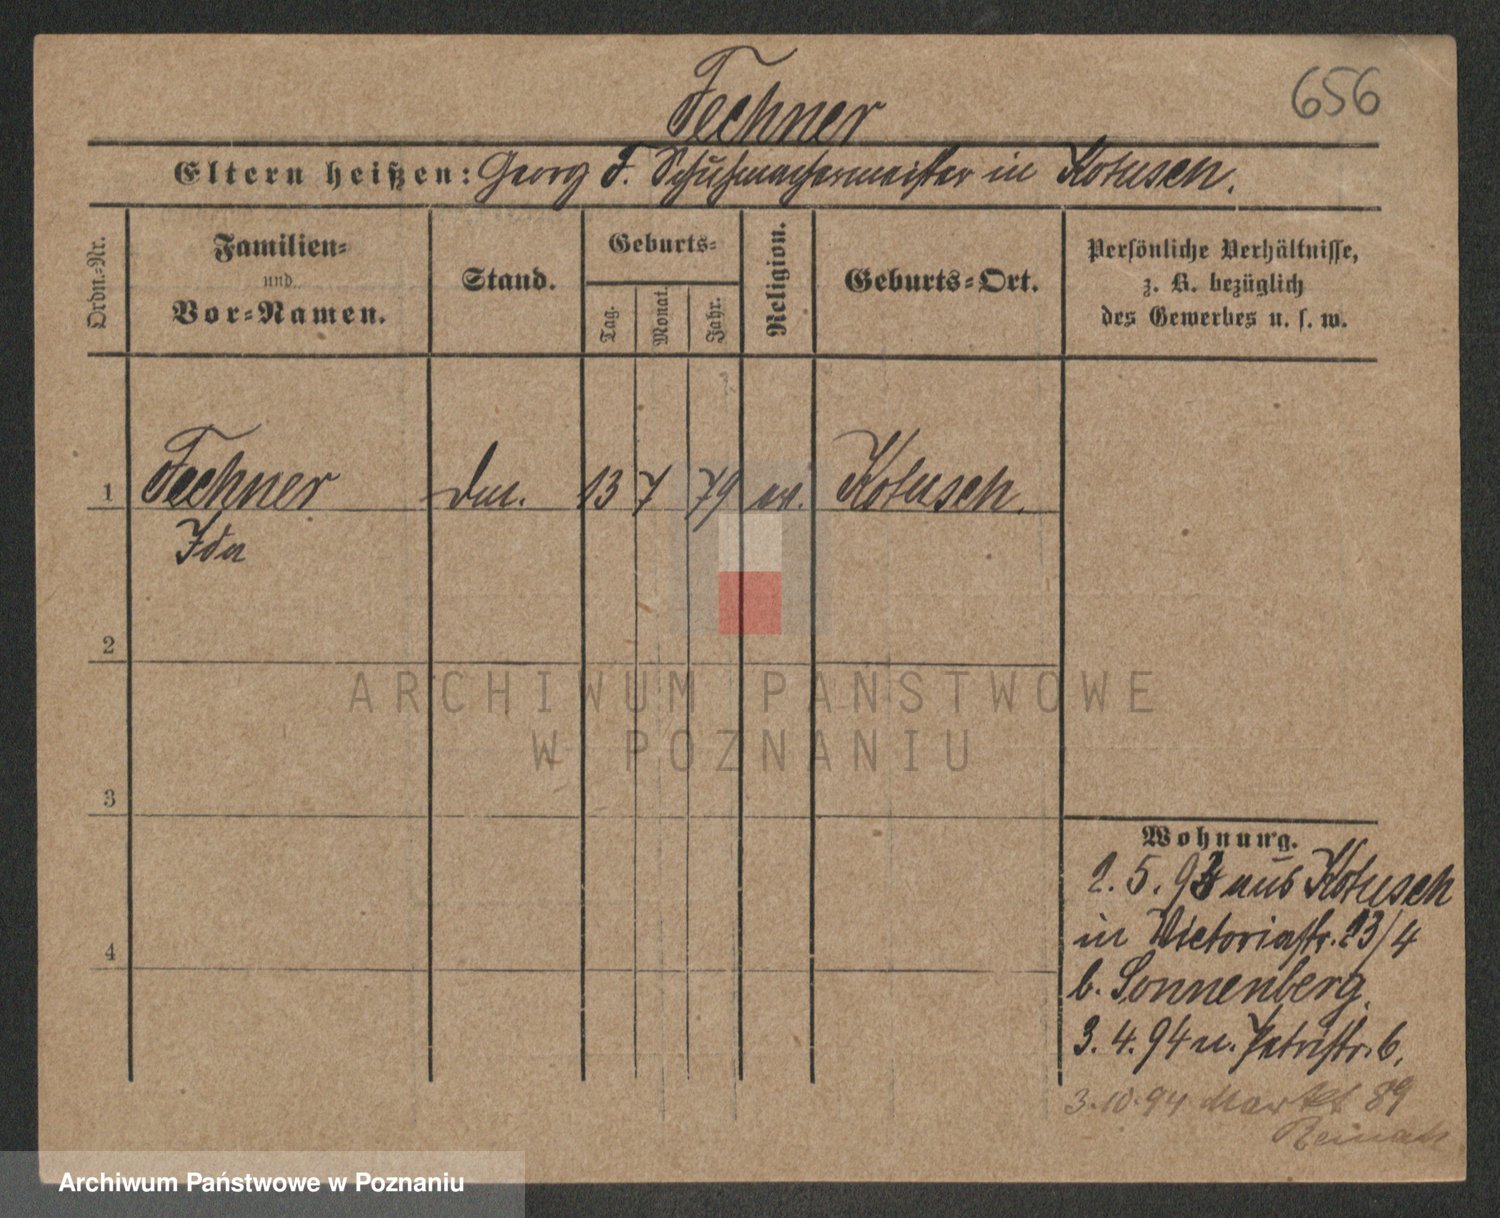 Fechner
656
Eltern heißen: Georg F. Schuhmachermeister in Kotusch.
Ordn.-Nr.
Familien-
und
Vor-Namen.
Stand.
Geburts-
Tag.
Monat.
Jahr.
Religion.
Geburts-Ort.
Persönliche Verhältnisse,
z. B. bezüglich
des Gewerbes u. s. w.
1 Fechner 13 7 79 ev. Kotusch.
Ida
2
3
4
Wohnung.
2. 5. 93 aus Kotusch
in Victoriastr. 23/4
b. Sonnenberg.
3. 4. 94 n. Petristr. 6.
3.10.94 Markt 89
ARCHIWUM PAŃSTWOWE
W POZNANIU
Archiwum Państwowe w Poznaniu